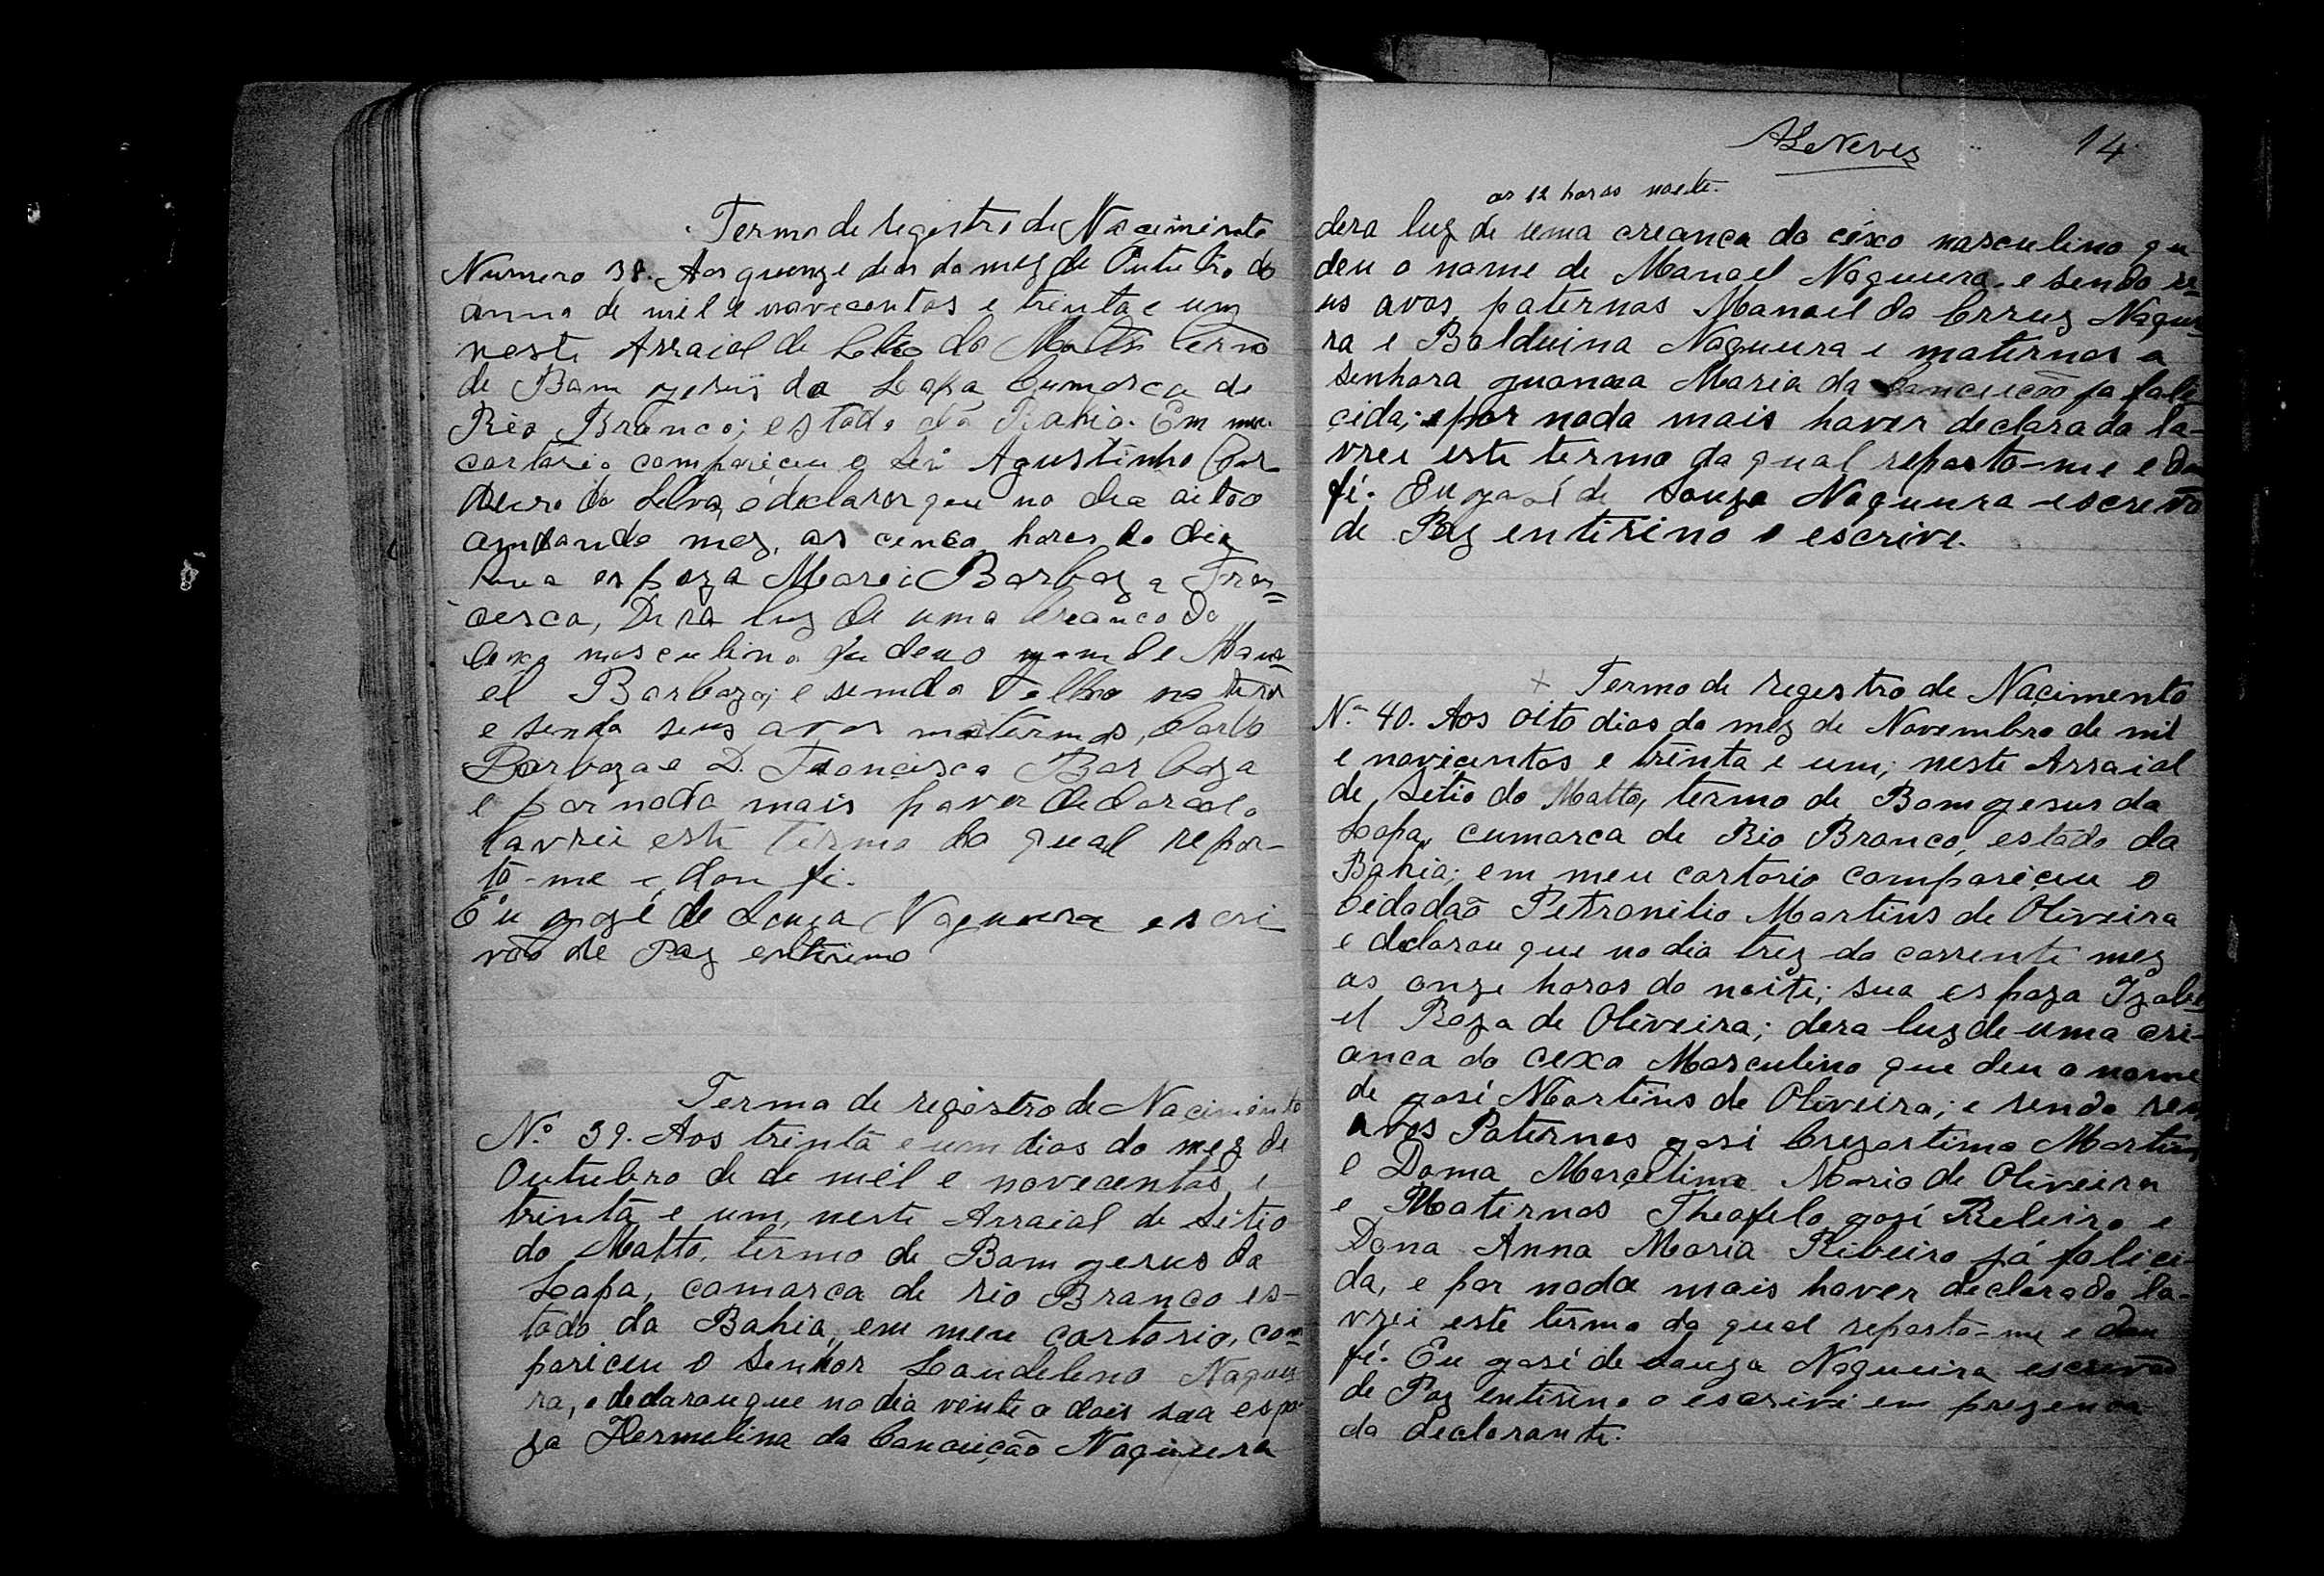 Termo de registro de Nacimento
Numero 38. Aos quenze dias do mez de Outubro do
anno de mil e novecentos e trinta e um
neste Arraial de Sitio do Matto termo
de Bom gesus da Lapa Cumarca de
Rio Branco; estado da Bahia. Em meu
cartorio compareceu o Snr Agustinho Cor
deiro da Silva, e declarou que no dia oitoo
andando mez, as cinco horas do dia
sua espoza Maria Barboza Fran=
cesca, Dera luz de uma Creanca do
Cexo masculino que deu o nome de Mano
el Barboza; e sendo Filho na
e sendo seus avos maternos, Carlo
Barboza e D. Francisca Barboza
e por nada mais haver declarado
lavrei este termo do qual repor-
to-me e dou fé.
Eu gozé de Souza Nogueira escri
vão de Paz entirino
Termo de registro de Nacimento
N.º 39. Aos trinta e um dias do mez de
Outubro de de mil e novecentos e
trinta e um, neste Arraial de Sitio
do Matto, termo de Bom gesus da
Lapa, comarca de rio Branco es-
tado da Bahia, em meu cartorio, com
pariceu o Senhor Laudelino Noguei
ra, e declarou que no dia vinte e dois sua espo
za Hermelina da Conceição Nogueira
ALNeves 14
as 12 horas noite.
dera luz de uma creança do céxo masculino qu
deu o nome de Manoel Nogueira. e sendo se=
us avos paternos Manoel da Crruz Noguei
ra e Balduina Nogueira e maternos a
Senhora guanna Maria da Conceição ja fale
cida; e por nada mais haver declarado la-
vrei este termo do qual reporto-me e dou
fé. Eu gosé de Souza Nogueira escrevão
de Paz entirino o escrive.
+ Termo de registro de Naçimento
N.º 40. Aos oito dias do mez de Novembro de mil
e noviçentos e trinta e um; neste Arraial
de Sitio do Matto, termo de Bom gesus da
Lapa, cumarca de Rio Branco, estado da
Bahia; em meu cartorio compariçeu o
Cidadão Petronilio Martins de Oliveira
e declarou que no dia trez do corrente mez
as onze horas da noite; sua espoza Izabe
el Roza de Oliveira; dera luz de uma cri-
anca do cexo Masculino que deu o nome
de gosé Martins de Oliveira; e sendo seus
avos Paternos gosé Crezostimo Martins
e Dona Marçelina Maria de Oliveira
e Maternos Theofelo gosé Ribeiro e
Dona Anna Maria Ribeiro já falici-
da, e por nada mais haver declarado la-
vrei este termo do qual reporto-me e dou
fé. Eu gosé de Souza Nogueira escrivão
de Paz entirino o escrivi em prezença
do declarante.